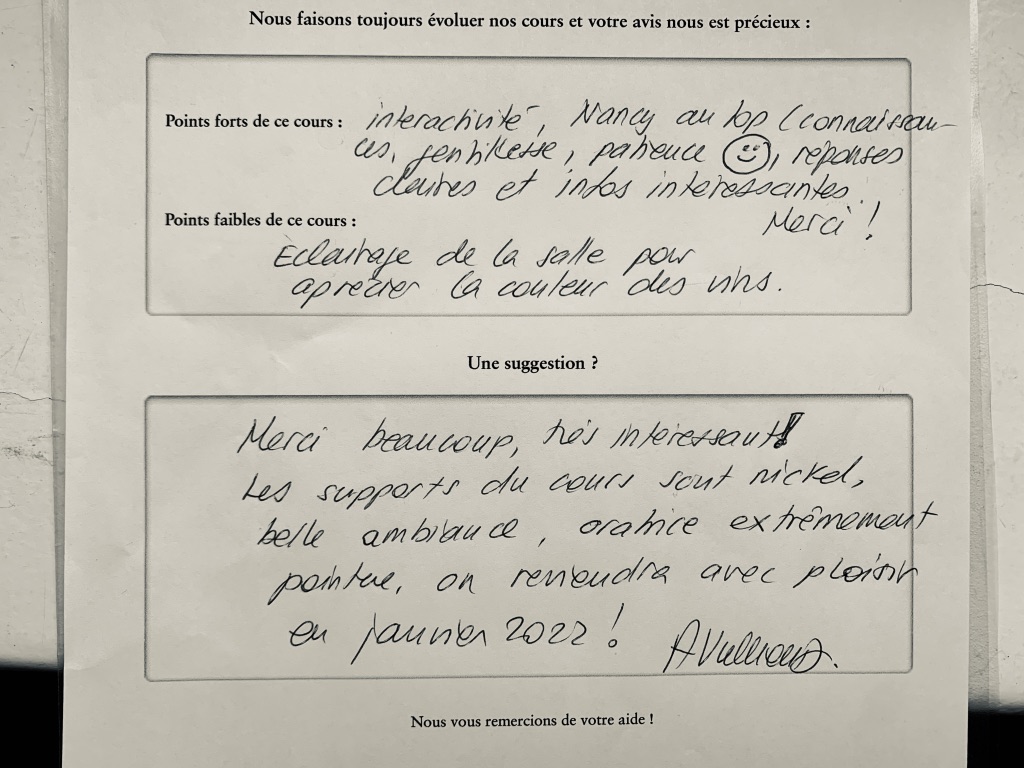 Nous faisons toujours évoluer nos cours et votre avis nous est précieux :
Points forts de ce cours : interactivité, Nancy au top (connaissan-
ces, gentillesse, patience ☺), réponses
claires et infos intéressantes.
Merci !
Points faibles de ce cours :
Eclairage de la salle pour
aprecier la couleur des vins.
Une suggestion ?
Merci beaucoup, très intéressant!
Les supports du cours sont nickel,
belle ambiance, oratrice extrêmement
pointue, on reviendra avec plaisir
en janvier 2022 !
Nous vous remercions de votre aide !